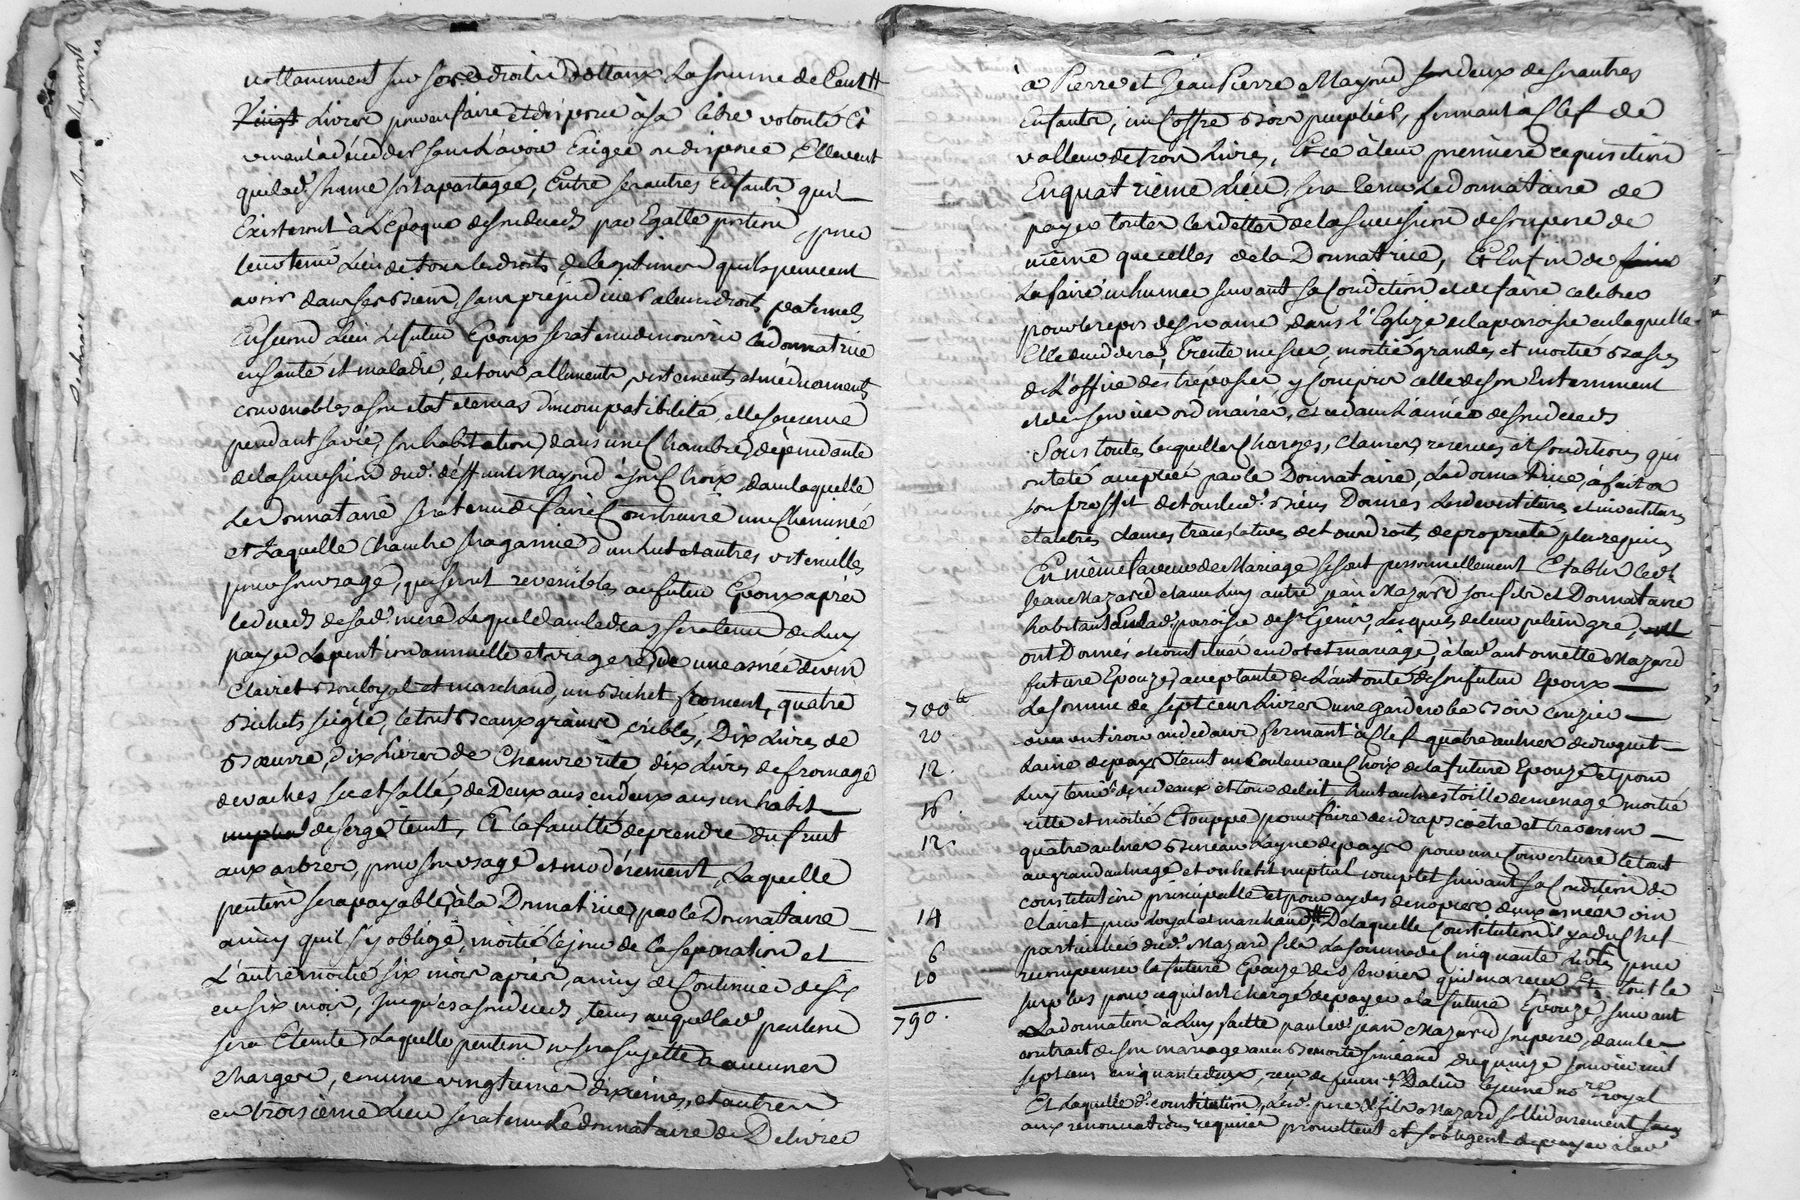 nottamment sur ses droits dottaux La somme de Cent #
Vingt Livres pour en faire et disposer à sa libre volonté Et
venant à décéder sans L'avoir Exigée ou disposée Elle veut
que lad. somme soit partagée, Entre ses autres Enfants qui
Existeront à L'époque de son deceds par Egalle portion, pour
leur tenir Lieu de tous les droits de legitimes qu'ils peuvent
avoir dans ses biens, sans prejudice à leurs droits paternels
En second Lieu Le futur Epoux sera tenu de nourrir la donnatrice
en santé et maladie, de tous alliments vestements et médicaments
convenables à son etat et en cas d'incompatibilité, elle se reserve
pendant sa vie, son habitation dans une Chambre, dépendante
de la succession dud. deffunt Mayoud à son Choix, dans laquelle
Le Donnataire sera tenu de faire Construire une Cheminée
et Laquelle Chambre sera garnie d'un lict et autres ustenciles
pour son usage, qui seront reversibles au futur Epoux après
le deceds de sad. mere Lequel dans led. cas sera tenu de Luy
payer La pention annuelle et viagere, de une asnée de vin
Clairet bon loyal et marchand, un bichet froment, quatre
bichets siegle, le tout beaux grains criblés, Dix Livres de
beurre, dix Livres de Chanvre rite, dix Livres de fromage
de vaches sec et sallé, de Deux ans en deux ans un habit
nuptial de serge teint, Et la faculté de prendre du fruit
aux arbres, pour son usage et modérément, Laquelle
pention sera payable, à la Donnatrice, par le Donnataire
ainsy qu'il s'y oblige, moitié le jour de la separation et
L'autre moitié six mois après, ainsy de Continuer de six
en six mois, jusques à son deceds, tems auquel lad. pention
sera Eteinte, Laquelle pention ne sera sujette à aucunes
Charges, comme vingtiemes dixiemes, et autres
en troisième Lieu sera tenu Le donnataire de Délivrer
à Pierre et Jean Pierre Mayoud ses deux des autres
Enfants, un Coffre bois peuplier, fermant à Clef de
valleur de trois Livres, Et ce à leur première requisition
En quatrième Lieu sera tenu Le donnataire de
payer toutes les dettes de la succession de son pere de
même que celles de la Donnatrice, Et Enfin de faire
La faire inhumer suivant sa Condition et de faire celebrer
pour le repos de son ame, dans L'Eglize de la paroisse en laquelle
Elle decedera, trente messes, moitié grandes et moitié basses
de L'office des trépassés, y compris celle de son Enterrement
et de services ordinaires, et ce dans L'année de son deceds
Sous toutes lesquelles Charges, Clauses, reserves et Conditions qui
ont été acceptées par le Donnataire, La donnatrice, a fait a
son proffit de tous led. biens Donnés Les devestitures et investitures
et autres clauses translatives de tous droits de propriété plus requis
En même faveur de Mariage se sont personnellement Etablis led.
Jean Mazard et avec Luy autre jean Mazard son fils et Donnataire
habitans En lad. paroisse de St Genis, Lesquels de leur plein gré,
ont Donnés et constitué en dot et mariage, à lad. antoinette Mazard
future Epouze, acceptante de L'autorité de son futur Epoux
700 lt La somme de sept cent Livres une garderobe bois cerizier
20. avec un tiroir au dedans fermant à Clef quatre aulnes de droguet
12. Laine de pays teint en Couleur au Choix de la future Epouze et pour
Luy tenir de rideaux et tour de lit huit aulnes toille de menage moitié
16. ritte et moitié Etouppe pour faire deux draps coetre et traversin
12. quatre aulnes Layne de pays pour une Couverture le tout
au grand aulnage et un habit nuptial complet suivant sa Condition de
constitution principalle et pour aydes de nopces deux asnées vin
14 clairet pur Loyal et marchand, # De laquelle Constitution il y a du Chef
6 particulier dud. Mazard fils La somme de Cinquante Livres pour
10 recompenser la future Epouze des services qu'
790. surplus pour ce qu'il est chargé de payer à la future Epouze, suivant
La donnation à Luy faitte par led. jean Mazard son pere, dans le
contrat de son mariage avec benoite du quinze janvier mil
sept cens cinquante deux, reçu Dalin Lejeune nore royal
Et Laquelle de. constitution, Lesd. pere & fils Mazard sollidairement
aux renonciations requises promettent et s'obligent de payer à lad.